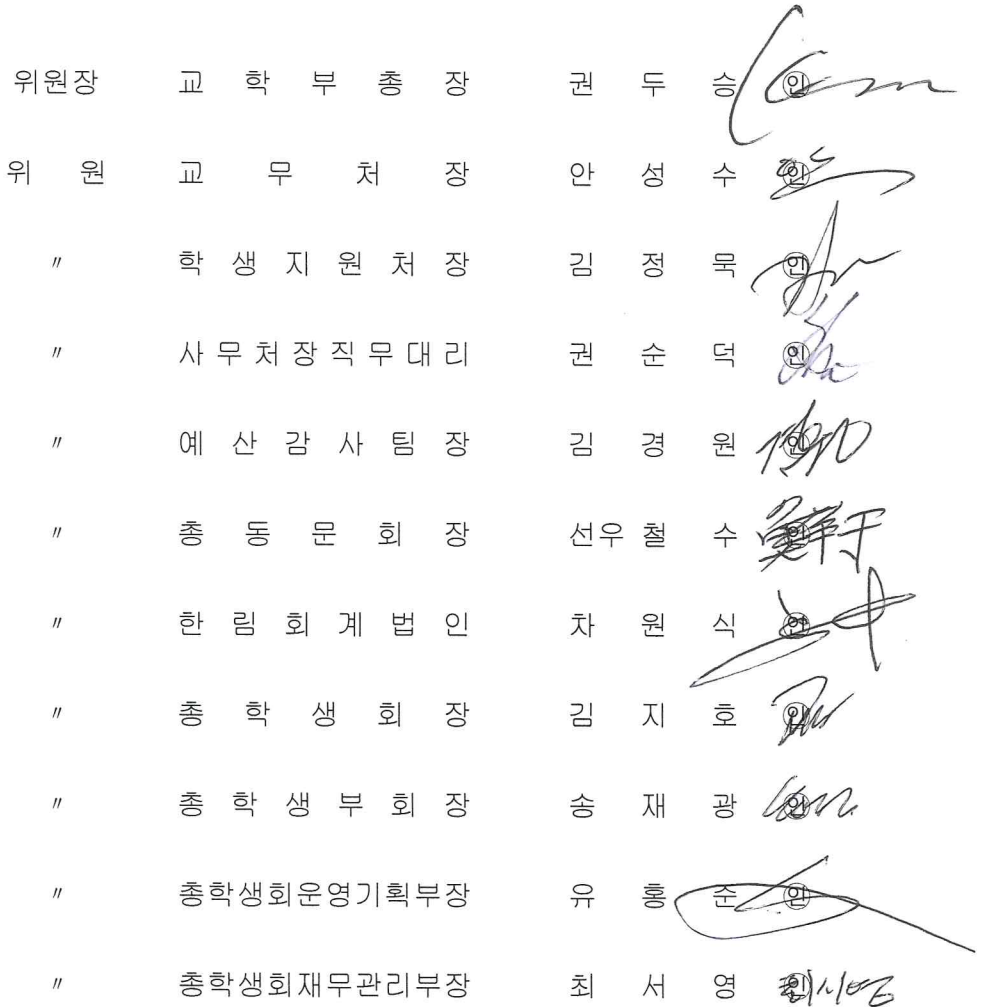 위원장 교 학 부 총 장 권 두 승 ㊞
위 원 교 무 처 장 안 성 수 ㊞
〃 학 생 지 원 처 장 김 정 묵 ㊞
〃 사 무 처 장 직 무 대 리 권 순 덕 ㊞
〃 예 산 감 사 팀 장 김 경 원 ㊞
〃 총 동 문 회 장 선우 철 수 ㊞
〃 한 림 회 계 법 인 차 원 식 ㊞
〃 총 학 생 회 장 김 지 호 ㊞
〃 총 학 생 부 회 장 송 재 광 ㊞
〃 총학생회운영기획부장 유 홍 준 ㊞
〃 총학생회재무관리부장 최 서 영 ㊞